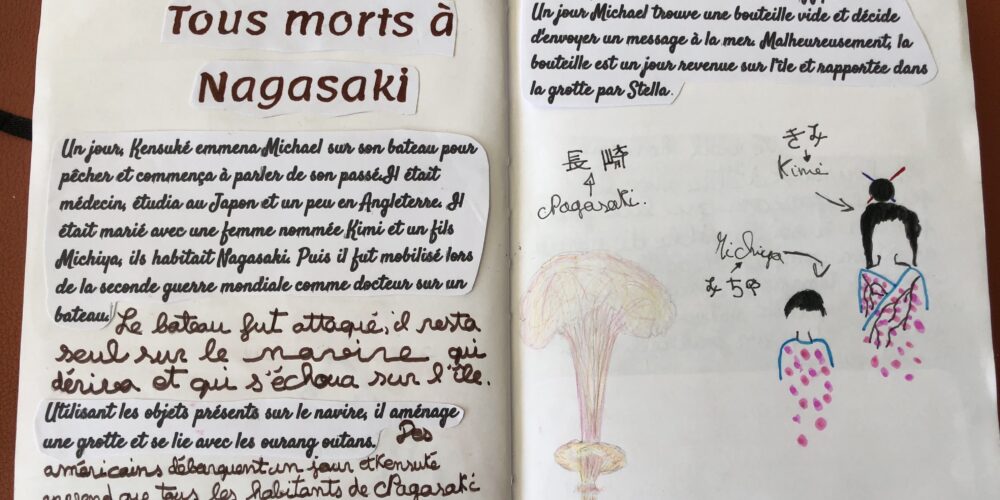 Tous morts à
Nagasaki
Un jour, Kensuké emmena Michael sur son bateau pour
pêcher et commença à parler de son passé.Il était
médecin, étudia au Japon et un peu en Angleterre. Il
était marié avec une femme nommée Kimi et un fils
Michiya, ils habitait Nagasaki. Puis il fut mobilisé lors
de la seconde guerre mondiale comme docteur sur un
bateau. Le bateau fut attaqué, il resta
seul sur le navire qui
dériva et qui s'échoua sur l'île.
Utilisant les objets présents sur le navire, il aménage
une grotte et se lie avec les ourang outans. Des
américains débarquent un jour et Kensuké
apprend que tous les habitants de Nagasaki
Un jour Michael trouve une bouteille vide et décide
d'envoyer un message à la mer. Malheureusement, la
bouteille est un jour revenue sur l'île et rapportée dans
la grotte par Stella.
きみ
Kimi
長崎
Nagasaki.
Michiya
みちや